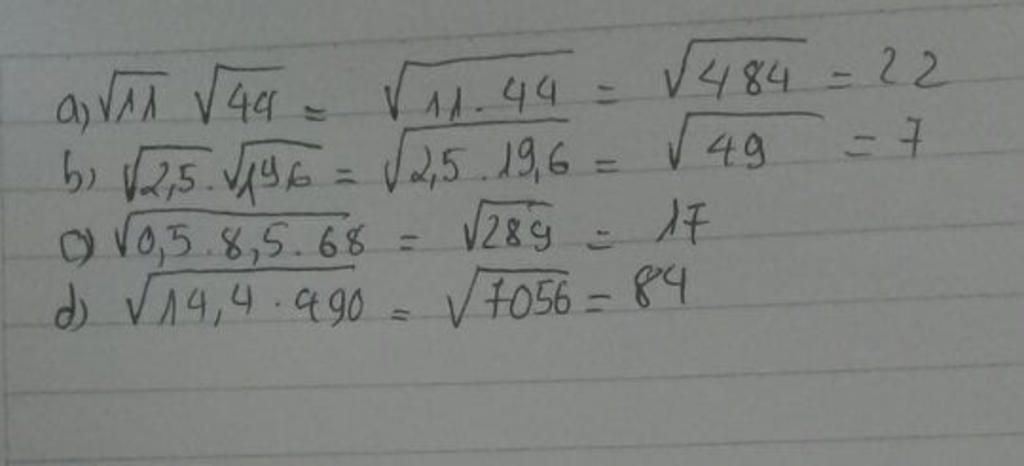 a) √11 √44 = √11.44 = √484 = 22
b) √2,5.√19,6 = √2,5.19,6 = √49 = 7
c) √0,5.8,5.68 = √289 = 17
d) √14,4.490 = √7056 = 84